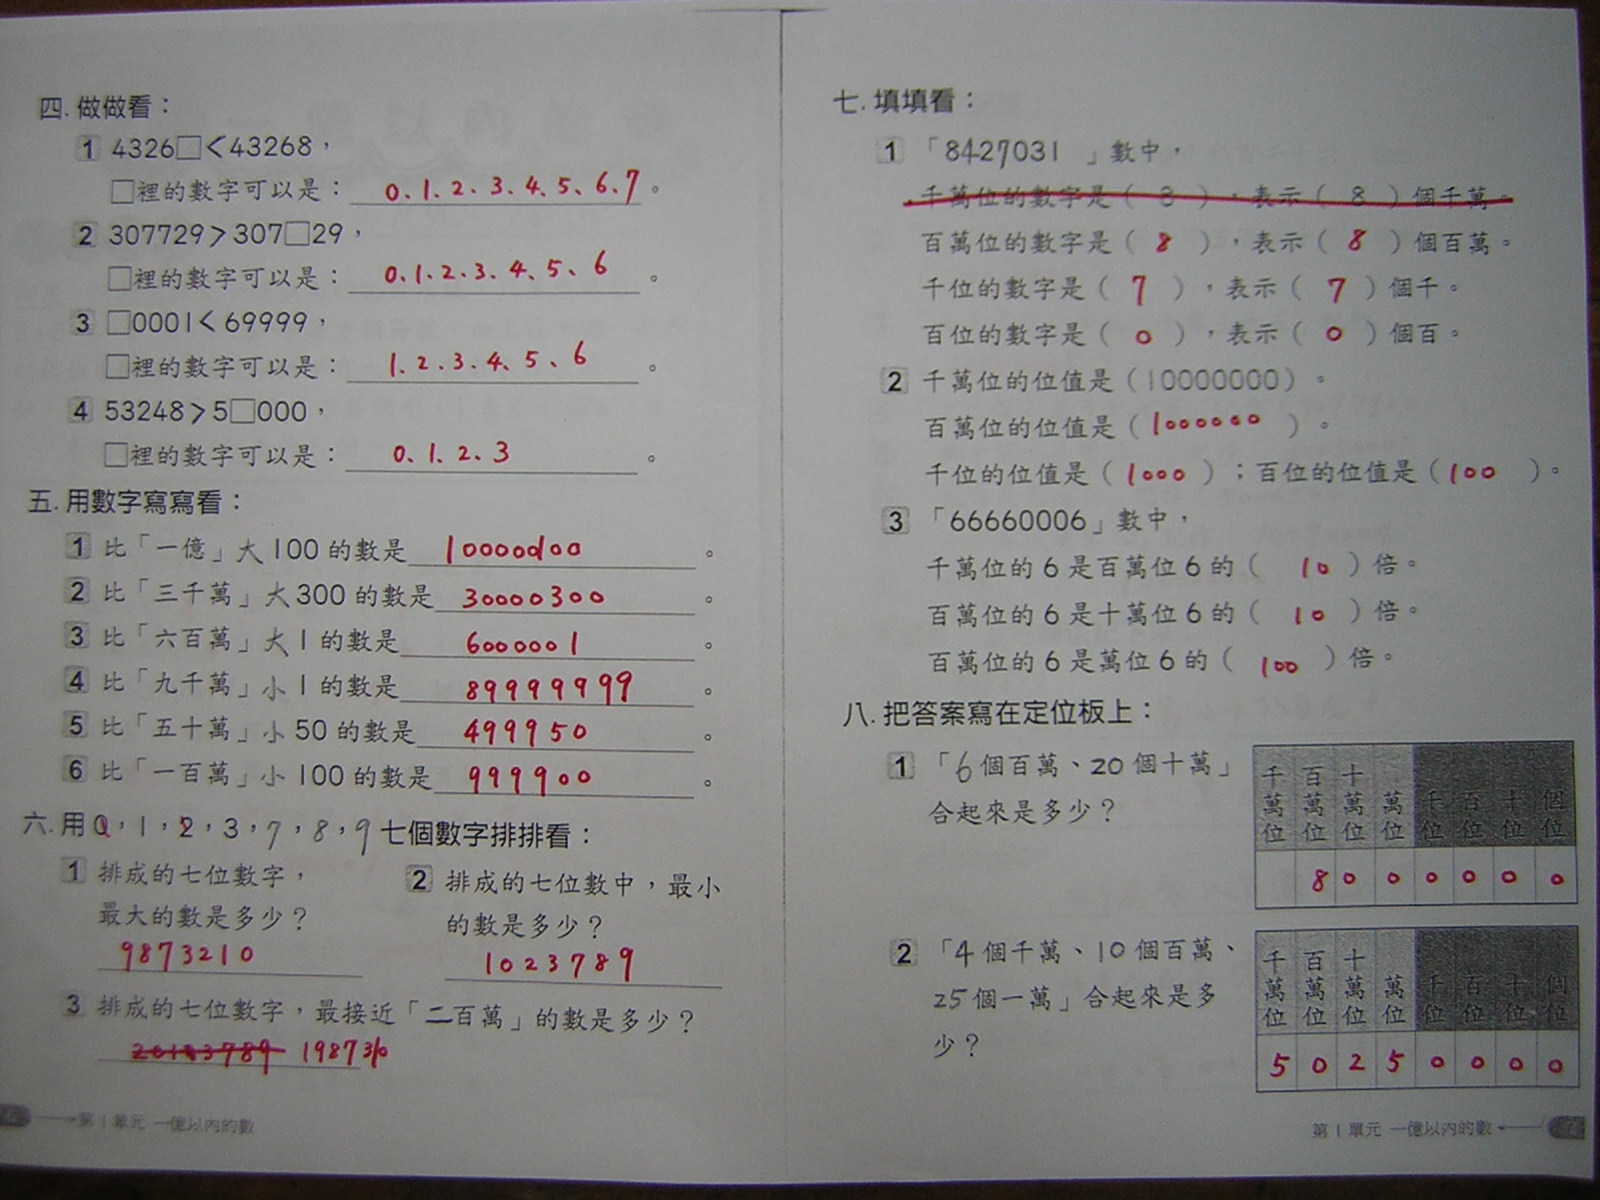 四. 做做看：
1 4326□<43268，
□裡的數字可以是： 0、1、2、3、4、5、6、7。
2 307729>307□29，
□裡的數字可以是： 0、1、2、3、4、5、6。
3 □0001<69999，
□裡的數字可以是： 1、2、3、4、5、6。
4 53248>5□000，
□裡的數字可以是： 0、1、2、3。
五. 用數字寫寫看：
1 比「一億」大100的數是
2 比「三千萬」大300的數是 30000300。
3 比「六百萬」大1的數是 6000001。
4 比「九千萬」小1的數是 89999999。
5 比「五十萬」小50的數是 499950。
6 比「一百萬」小100的數是 999900。
六. 用0，1，2，3，7，8，9七個數字排排看：
1 排成的七位數字，
最大的數是多少？
9873210
2 排成的七位數中，最小
的數是多少？
1023789
3 排成的七位數字，最接近「二百萬」的數是多少？
第1單元 一億以內的數
七. 填填看：
1 「8427031」數中，
千萬位的數字是（8），表示（8）個千萬。
百萬位的數字是（8），表示（8）個百萬。
千位的數字是（7），表示（7）個千。
百位的數字是（0），表示（0）個百。
2 千萬位的位值是（10000000）。
百萬位的位值是（1000000）。
千位的位值是（1000）；百位的位值是（100）。
3 「66660006」數中，
千萬位的6是百萬位6的（10）倍。
百萬位的6是十萬位6的（10）倍。
百萬位的6是萬位6的（100）倍。
八. 把答案寫在定位板上：
1 「6個百萬、20個十萬」
合起來是多少？
千萬位 百萬位 十萬位 萬位 千位 百位 十位 個位
8 0 0 0 0 0 0
2 「4個千萬、10個百萬、
25個一萬」合起來是多
少？
千萬位 百萬位 十萬位 萬位 千位 百位 十位 個位
5 0 2 5 0 0 0 0
第1單元 一億以內的數 7